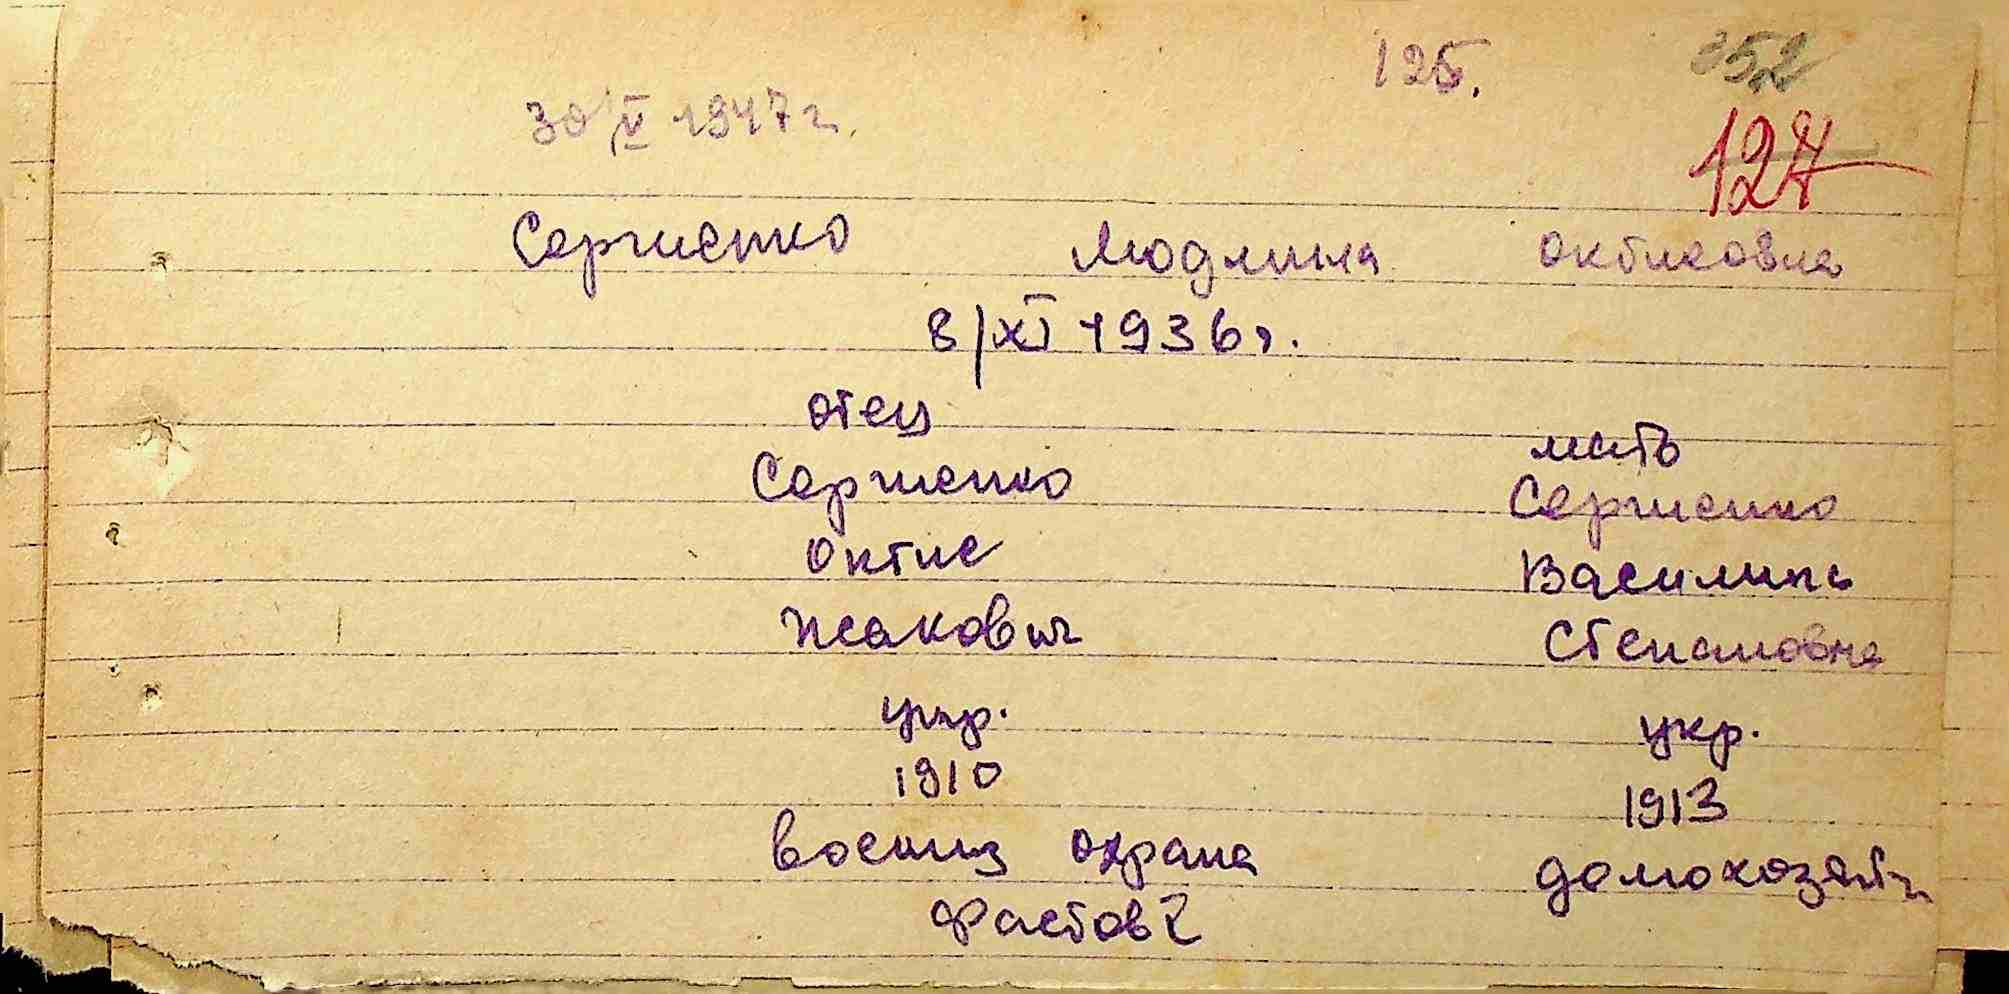 125. 352
30/V 1947 г. 127
Сергиенко Людмила Октисовна
8/XI 1936 г.
отец мать
Сергиенко Сергиенко
Октис Василина
Исакович Степановна
укр. укр.
1910 1913
охрана домохозяй
Фастов 2